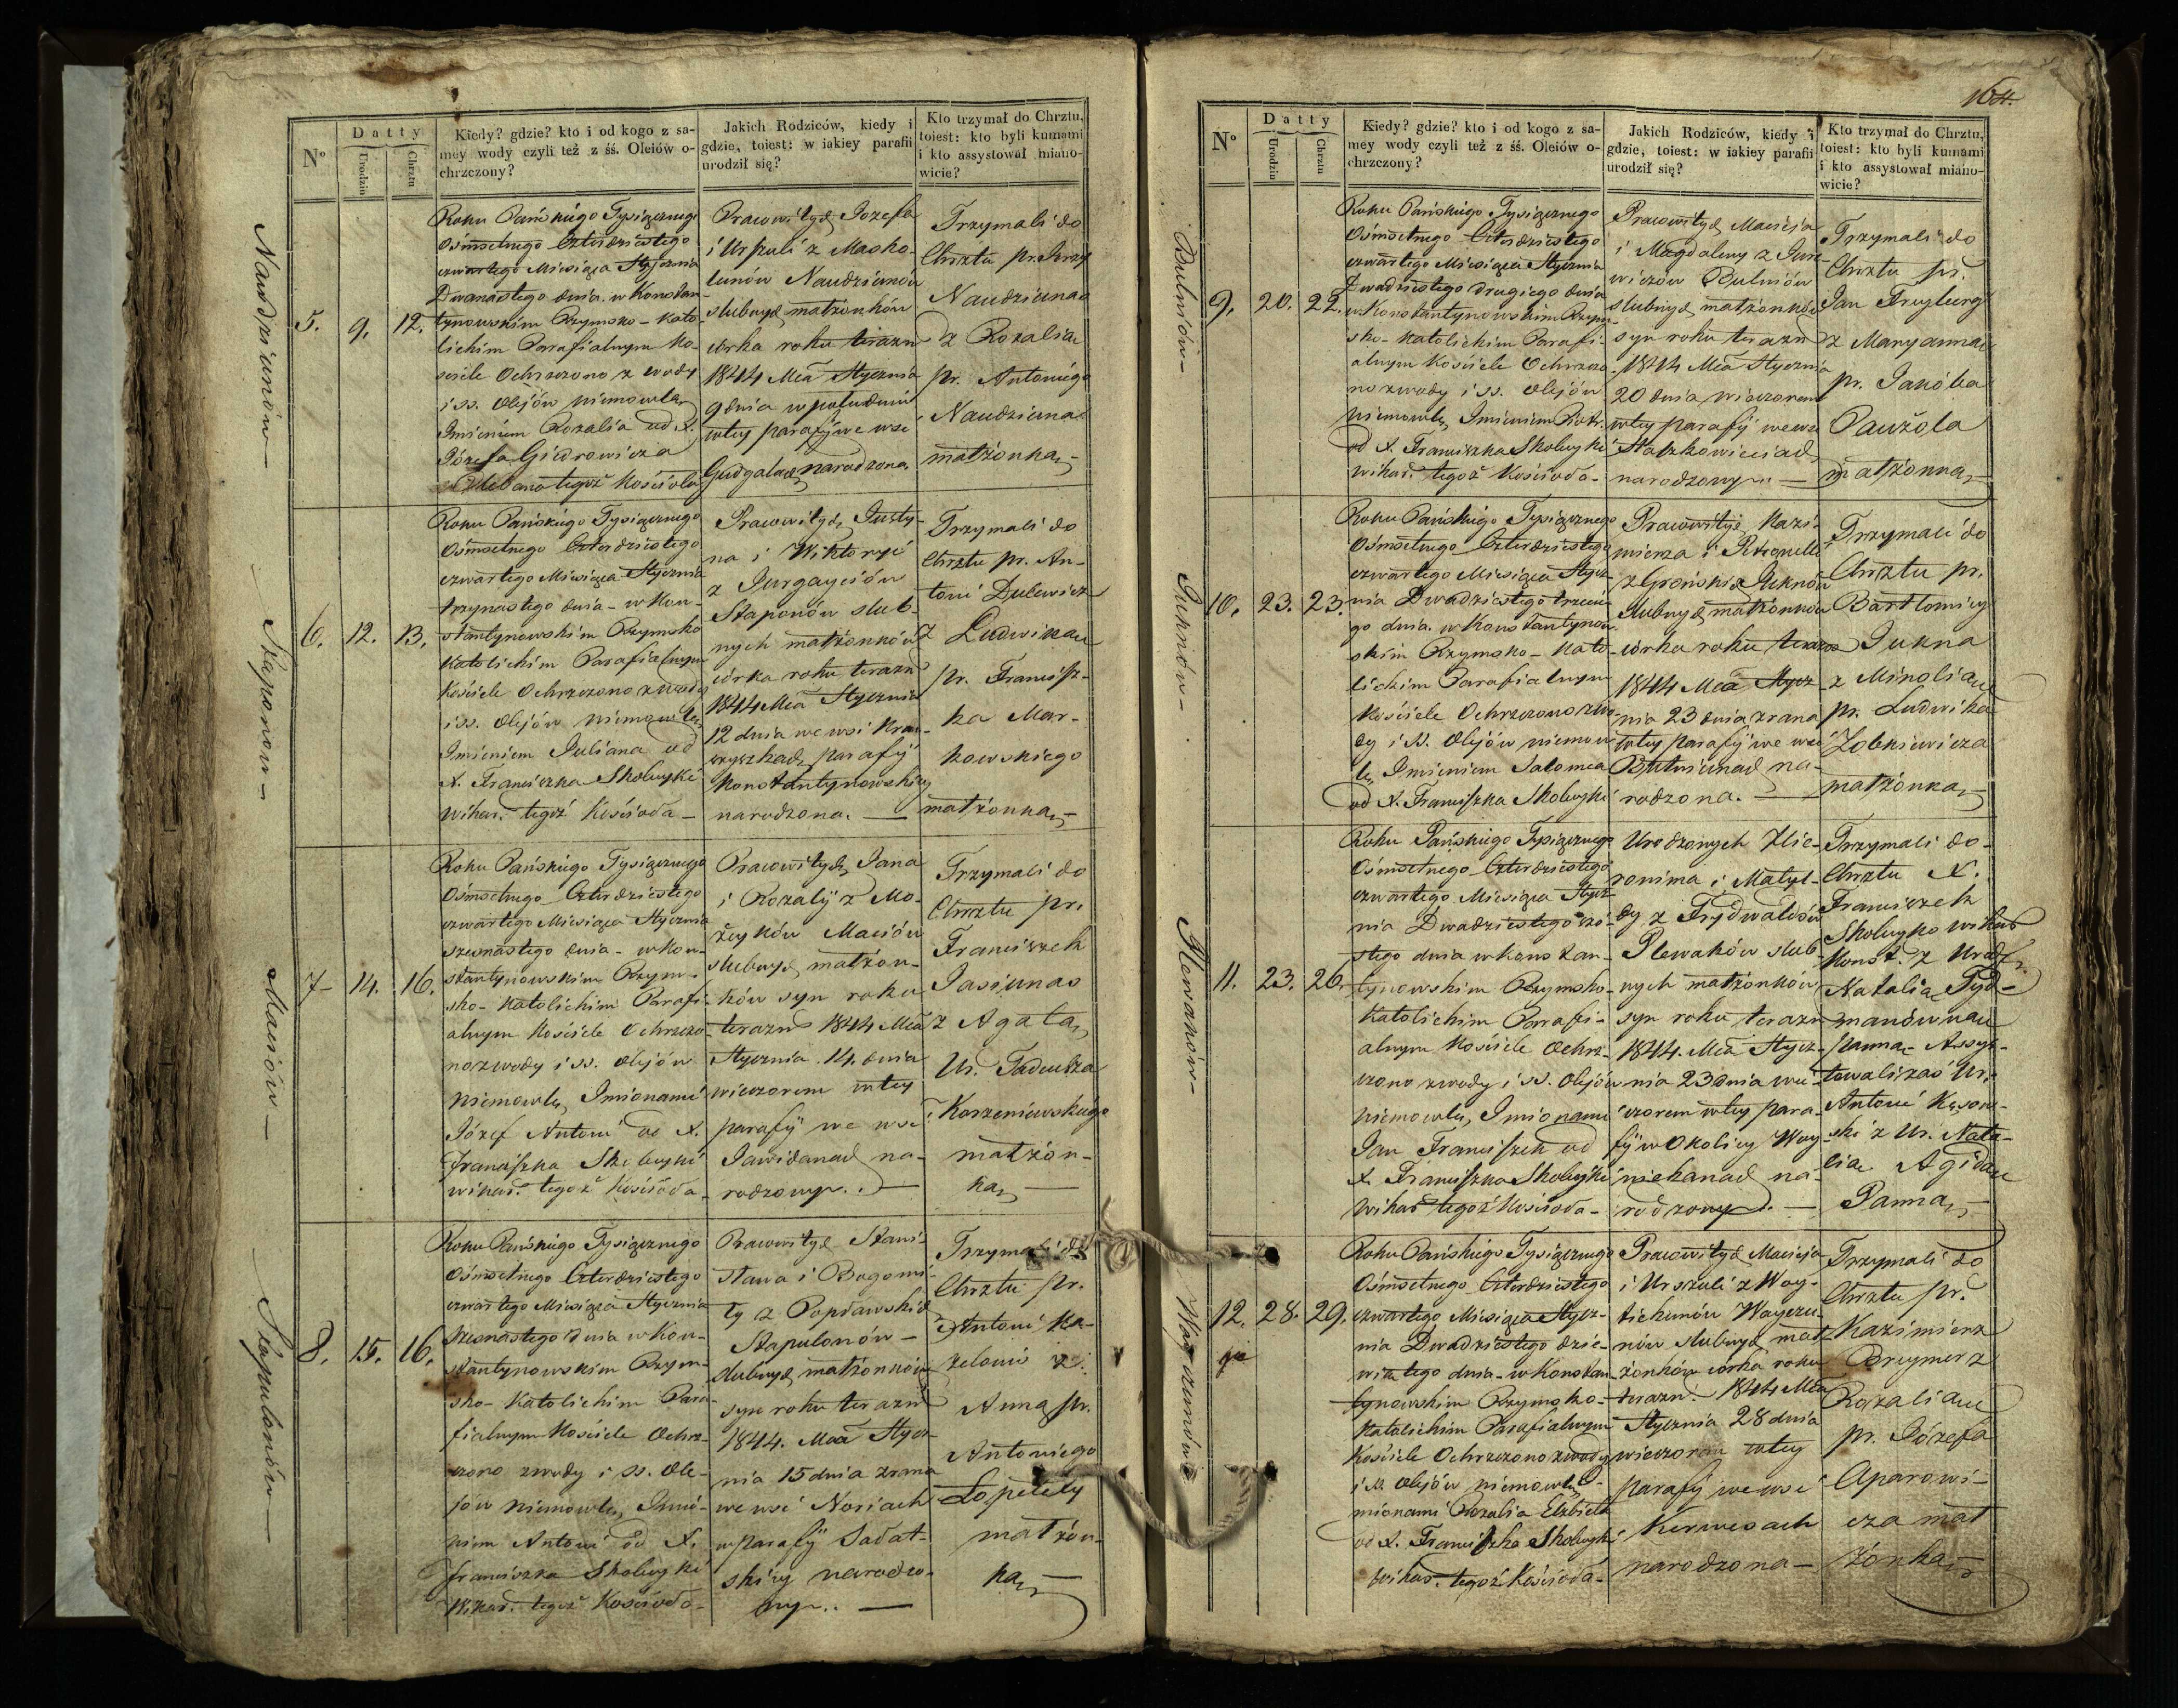 No
Datty
Urodzin
Chrztu
Kiedy? gdzie? kto i od kogo z sa-
mey wody czyli też z śś. Oleiów o-
chrzczony?
Jakich Rodziców, kiedy i
gdzie, toiest: w iakiey parafii
urodził się?
Kto trzymał do Chrztu,
toiest: kto byli kumami
i kto assystował miano-
wicie?
Naudziunów
5.
9.
12.
Roku Pańskiego Tysiącznego
Ośmsetnego Czterdziestego
czwartego Miesiąca Stycznia
Dwanastego dnia w Konstan-
tynowskim Rzymsko-Kato
lickim Parafialnym Ko-
ściele Ochrzczono z wody
i ss. Olejów niemowlę
Imieniem Rozalia od X.
Józefa Giedrowicza
Plebana tegoż Kościoła
Pracowitych Jozefa
i Urszuli z Masko-
lunów Naudziunów
slubnych małżonków
córka roku terazn
1844 Mca Stycznia
9 dnia w południu
w tey parafij we wsi
Gudgalach narodzona.
Trzymali do
Chrztu pr. Jerzy
Naudziunas
z Rozalią
pr. Antoniego
Naudziuna
małżonką
Staponów
6.
12.
13.
Roku Pańskiego Tysiącznego
Ośmsetnego Czterdziestego
czwartego Miesiąca Stycznia
trzynastego dnia - w Kon-
stantynowskim Rzymsko
Katolickim Parafialnym
Kościele Ochrzczono z wody
i ss. Olejów niemowlę
Imieniem Juliana od
X. Franciszka Skobeyki
wikar. tegoż Kościoła -
Pracowitych Justy-
na i Wiktoryi
z Jurgayciów
Staponów slub-
nych małżonków
córka roku terazn
1844 Mca Stycznia
12 dnia we wsi
parafij
Konstantynowskiey
narodzona.
Trzymali do
Chrztu pr. An-
toni Dulewicz
z Ludwiką
pr. Francisz-
ka Mar-
kowskiego
małżonką
Maciów
7
14.
16.
Roku Pańskiego Tysiącznego
Ośmsetnego Czterdziestego
czwartego Miesiąca Stycznia
szesnastego dnia - w Kon-
stantynowskim Rzym-
sko-Katolickim Parafi-
alnym Kościele Ochrzczo-
no z wody i ss. Olejów
niemowlę Imionami
Józef Antoni od X.
Franciszka Skobeyki
wikar. tegoż Kościoła
Pracowitych Jana
i Rozalij z Mo-
żeyków Maciów
slubnych małżon-
ków syn roku
terazn 1844 Mca
Stycznia 14 dnia
wieczorem w tey
parafij we wsi
Jawidanach na-
rodzony.
Trzymali do
Chrztu pr.
Franciszek
Jasiunas
z Agatą
Ur. Tadeusza
Korzeniewskiego
małżon-
ką
Stapulonów
8.
15.
16.
Roku Pańskiego Tysiącznego
Ośmsetnego Czterdziestego
czwartego Miesiąca Stycznia
szesnastego dnia w Kon-
stantynowskim Rzym-
sko-Katolickim Para-
fialnym Kościele Ochrz-
czono z wody i ss. Ole-
jów niemowlę Imie-
niem Antoni od X.
Franciszka Skobeyki
Wikar. tegoż Kościoła
Pracowitych Stani-
sława i Bogumi-
ły z Popławskich
Stapulonów -
slubnych małżonków
syn roku terazn
1844. Mca Stycz-
nia 15 dnia z rana
we wsi Noriach
w parafij Sałat-
skiey narodzo-
ny.
Trzymali do
Chrztu pr.
Antoni Ka-
zelonis z
Anną pr.
Antoniego
Łopetty
małżon-
ką
164.
No
Datty
Urodzin
Chrztu
Kiedy? gdzie? kto i od kogo z sa-
mey wody czyli też z śś. Oleiów o-
chrzczony?
Jakich Rodziców, kiedy i
gdzie, toiest: w iakiey parafii
urodził się?
Kto trzymał do Chrztu,
toiest: kto byli kumami
i kto assystował miano-
wicie?
Butniów
9.
20.
22.
Roku Pańskiego Tysiącznego
Ośmsetnego Czterdziestego
czwartego Miesiąca Stycznia
Dwadziestego drugiego dnia
w Konstantynowskim Rzym-
sko-Katolickim Parafi-
alnym Kościele Ochrzczo-
no z wody i ss. Olejów
niemowlę Imieniem Piotr.
od X. Franciszka Skobeyki
wikar. tegoż Kościoła -
Pracowitych Macieja
i Magdaleny z Jure-
wiczów Butniów
slubnych małżonków
syn roku terazn
1844 Mca Stycznia
20 dnia wieczorem
w tey parafij we wsi
Staczkowiciach
narodzony.
Trzymali do
Chrztu pr.
Jan Freyburg
z Maryanną
pr. Jakóba
Paużola
małżonką
Juknów
10.
23.
23.
Roku Pańskiego Tysiącznego
Ośmsetnego Czterdziestego
czwartego Miesiąca Stycz-
nia Dwadziestego trzecie-
go dnia w Konstantynow-
skim Rzymsko-Kato-
lickim Parafialnym
Kościele Ochrzczono z wo-
dy i ss. Olejów niemow
lę Imieniem Salomea
od X. Franciszka Skobeyki
Pracowitych Kazi-
mierza i Petroneli
z Grońskich Juknów
slubnych małżonków
córka roku terazn
1844 Mca Stycz-
nia 23 dnia z rana
w tey parafij we wsi
Butniunach na-
rodzona.
Trzymali do
Chrztu pr.
Bartłomiey
Jukna
z Minolią
pr. Ludwika
Zobkiewicza
małżonką
Plewaków
11.
23.
26.
Roku Pańskiego Tysiącznego
Ośmsetnego Czterdziestego
czwartego Miesiąca Stycz
nia Dwadziestego szó-
stego dnia w Konstan-
tynowskim Rzymsko-
Katolickim Parafi-
alnym Kościele Ochrz-
czono z wody i ss. Olejów
niemowlę Imionami
Jan Franciszek od
X. Franciszka Skobeyki
Wikar tegoż Kościoła -
Urodzonych Hie-
ronima i Matyl-
dy z Frydwaldów
Plewaków slub-
nych małżonków
syn roku terazn
1844. Mca Stycz-
nia 23 dnia wie-
czorem w tey para-
fij w Okolicy Woy-
niekanach na-
rodzony.
Trzymali do
Chrztu X.
Franciszek
Skobeyko wikar
Konst. z Urodz.
Natalią Tyd-
manówną
panną - Assys-
towali zaś Ur.
Antoni Kęsow-
ski z Ur. Nata-
lią
Panną
Wayczunów
12.
28.
29.
Roku Pańskiego Tysiącznego
Ośmsetnego Czterdziestego
czwartego Miesiąca Stycz-
nia Dwadziestego dzie-
wiątego dnia - w Konstan-
tynowskim Rzymsko-
Katolickim Parafialnym
Kościele Ochrzczono z wody
i ss. Olejów niemowlę I-
mionami Rozalia Elżbieta
od X. Franciszka Skobeyki
wikar. tegoż Kościoła -
Pracowitych Macieja
i Urszuli z Woy-
tiechunów Wayczu-
nów slubnych mał-
żonków córka roku
terazn. 1844 Mca
Stycznia 28 dnia
wieczorem w tey
parafij we wsi
Kerwesach
narodzona -
Trzymali do
Chrztu pr.
Kazimierz
Breymer z
Rozalią
pr. Józefa
Aparowi-
cza mał
żonką